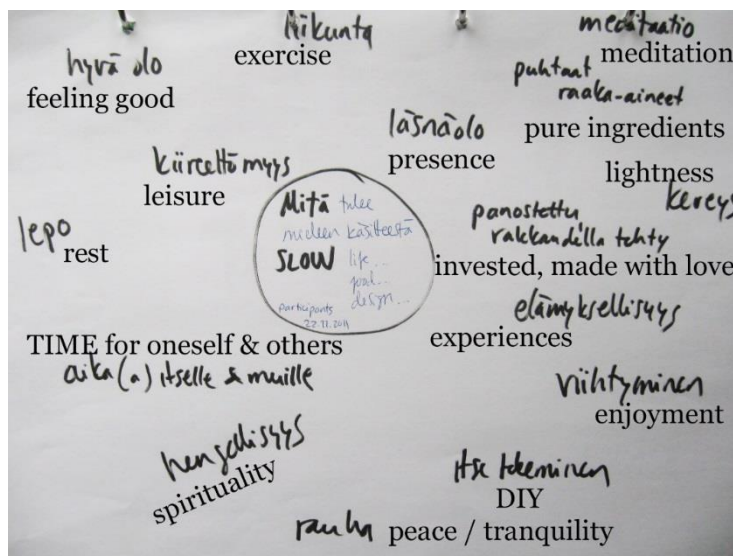 liikunta
exercise
meditaatio
meditation
hyvä olo
feeling good
puhtaat
raaka-aineet
pure ingredients
läsnäolo
presence
kiireettömyys
leisure
lightness
kereys
lepo
rest
Mitä tulee
mieleen käsitteestä
SLOW life...
food...
design...
participants
22.11.2011
panostettu,
rakkaudella tehty
invested, made with love
elämyksellisyys
experiences
TIME for oneself & others
aika(a) itselle & muille
viihtyminen
enjoyment
hengellisyys
spirituality
itse tekeminen
DIY
rauha peace / tranquility